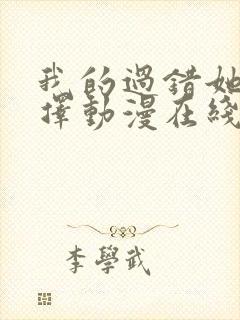 我的過錯她
擇動漫在綫
李學武